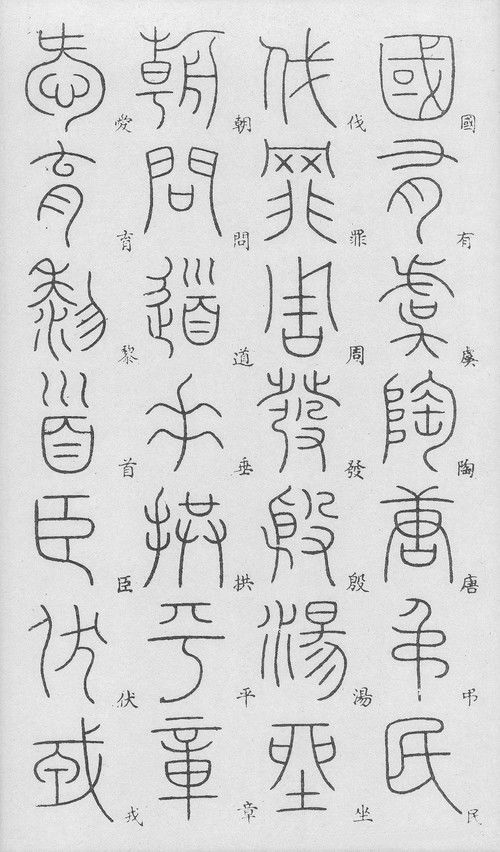 國有虞陶唐弔民
伐罪周發殷湯坐
朝問道垂拱平章
愛育黎首臣伏戎